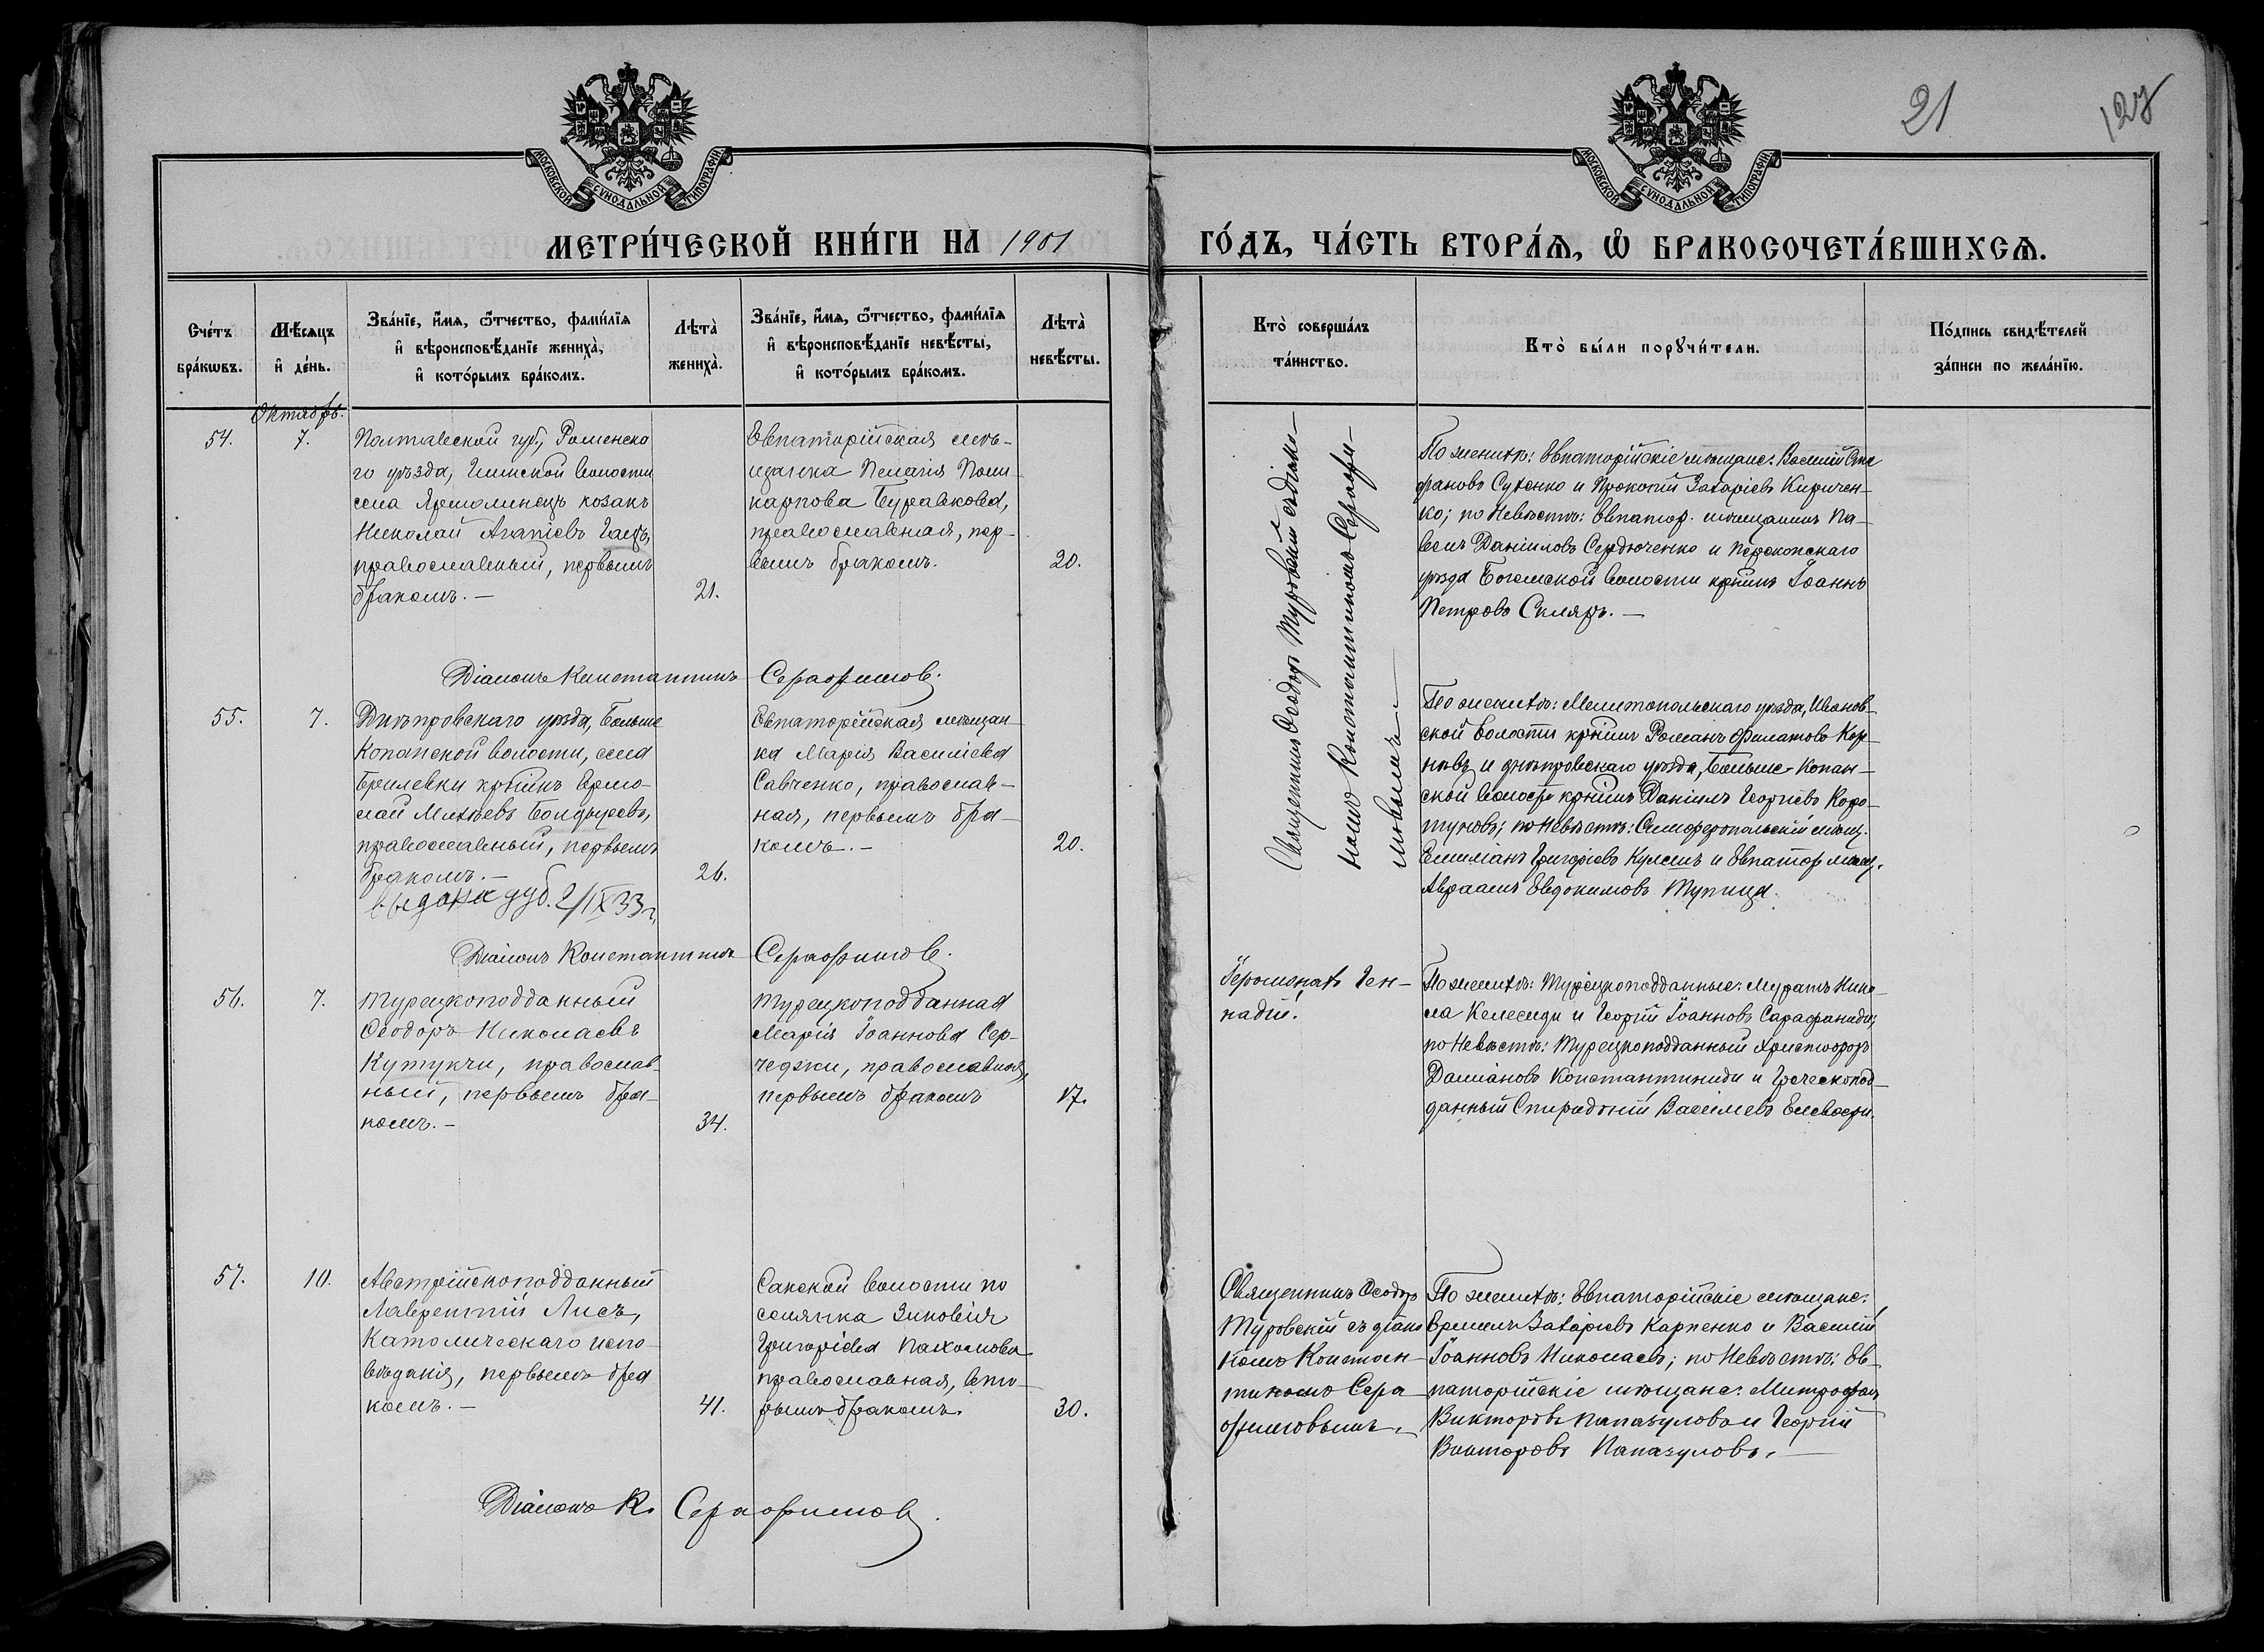 21
127
МОСКОВСКОЙ СѴНОДАЛЬНОЙ ТИПОГРАФІИ
МОСКОВСКОЙ СѴНОДАЛЬНОЙ ТИПОГРАФІИ
МЕТРИ́ЧЕСКОЙ КНИ́ГИ НА 1901 ГО́ДЪ, ЧА́СТЬ ВТОРА́Ѧ, Ѡ҆ БРАКОСОЧЕТА́ВШИХСѦ.
Сче́тъ
бра́кѡвъ.
Мѣ́сѧцъ
и҆ де́нь.
Зва́нїе, и҆́мѧ, ѻ҆́тчество, фами́лїѧ
и҆ вѣроисповѣ́данїе жениха̀,
и҆ кото́рымъ бра́комъ.
Лѣта̀
жениха̀.
Зва́нїе, и҆́мѧ, ѻ҆́тчество, фами́лїѧ
и҆ вѣроисповѣ́данїе невѣ́сты,
и҆ кото́рымъ бра́комъ.
Лѣта̀
невѣ́сты.
Кто̀ соверша́лъ
та́инство.
Кто̀ бы́ли порꙋчи́тели.
По́дпись свидѣ́телей
за́писи по жела́нїю.
Октябрь.
54.
7.
Полтавской губ., Роменска
го уѣзда, Глинской волости
села Ярмолинецъ козакъ
Николай Агапіевъ Гацъ,
православный, первымъ
бракомъ. —
21.
Евпаторійская мѣ-
щанка Пелагія Поли-
карпова Буравкова,
православная, пер-
вымъ бракомъ.
20.
Священникъ Ѳеодоръ Туровскій съ діако-
номъ Константиномъ Серафи-
мовымъ. —
По женихѣ: Евпаторійскіе мѣщане: Василій Сте
фановъ Сутенко и Прокопій Захаріевъ Киричен-
ко; по невѣстѣ: Евпатор. мѣщанинъ Па-
велъ Даніиловъ Сердюченко и Перекопскаго
уѣзда Богемской волости кр-нинъ Іоаннъ
Петровъ Скляръ. —
Діаконъ Константинъ Серафимовъ.
55.
7.
Днѣпровскаго уѣзда, Больше
Копанской волости, села
Брилевки кр-нинъ Ермо-
лай Михѣевъ Болдыревъ,
православный, первымъ
бракомъ. —
26.
выдана дуб. 2/IX 33 г.
Евпаторійская мѣщан-
ка Марія Василіева
Савченко, православ-
ная, первымъ бра-
комъ. —
20.
По женихѣ: Мелитопольскаго уѣзда, Иванов-
ской волости кр-нинъ Романъ Филатовъ Кор-
нѣвъ и Днѣпровскаго уѣзда, Больше-Копан-
ской волости кр-нинъ Даніилъ Георгіевъ Коро-
туновъ; по невѣстѣ: Симферопольскій мѣщ.
Емиліанъ Григоріевъ Кулешъ и Евпатор. мѣщ.
Авраамъ Евдокимовъ Тупица.
Діаконъ Константинъ Серафимовъ.
56.
7.
Турецкоподданный
Ѳеодоръ Николаевъ
Кутукчи, православ-
ный, первымъ бра-
комъ. —
34.
Турецкоподданная
Марія Іоаннова Сер-
чеджи, православная,
первымъ бракомъ
17.
Іеромонахъ Ген-
надій.
По женихѣ: Турецкоподданные: Муратъ Нико-
ла Келесиди и Георгій Іоанновъ Сарафаниди;
по невѣстѣ: Турецкоподданный Христофоръ
Даміановъ Константиниди и Греческопод-
данный Спиридоній Василіевъ
57.
10.
Австрійскоподданный
Лаврентій Лисъ,
Католическаго испо-
вѣданія, первымъ бра
комъ. —
41.
Сакской волости по
селянка Зиновія
Григоріева Пахомова
православная, вто-
рымъ бракомъ.
30.
Священникъ Ѳеодоръ
Туровскій съ діако
номъ Констан-
тиномъ Сера
фимовымъ. —
По женихѣ: Евпаторійскіе мѣщане:
Еремѣй Захаріевъ Карпенко и Василій
Іоанновъ Николаевъ; по невѣстѣ: Ев-
паторійскіе мѣщане: Митрофанъ
Викторовъ Папазуловъ и Георгій
Викторовъ Папазуловъ. —
Діаконъ К. Серафимовъ.